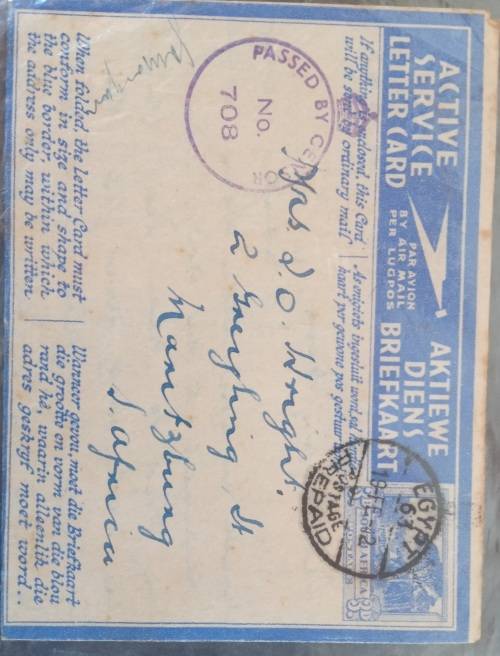 ACTIVE
SERVICE
LETTER CARD
PAR AVION
BY AIR MAIL
PER LUGPOS
AKTIEWE
DIENS
BRIEFKAART
If anything is enclosed, this Card
will be sent by ordinary mail
As enigiets ingesluit word, sal
kaart per gewone pos gestuur
PASSED BY CENSOR
No.
708
EGYPT
63
POSTAGE
PREPAID
Mrs. D. O. Wright.
2 Greyling St
Maritzburg
S. Africa
When folded, the Letter Card must
conform in size and shape to
the blue border, within which
the address only may be written
Wanneer gevou, moet die Briefkaart
die grootte en vorm van die blou
rand hê, waarin alleenlik die
adres geskryf moet word..